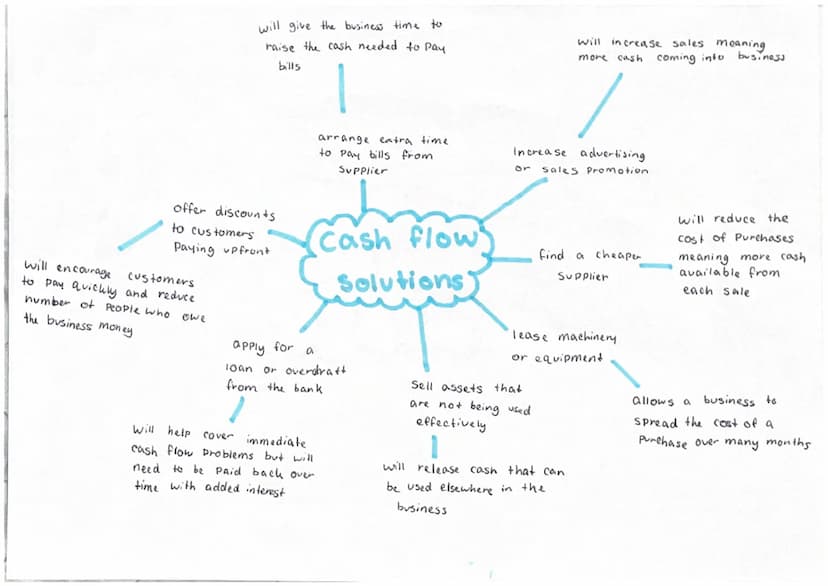 will give the business time to
raise the cash needed to pay
bills
arrange extra time
to pay bills from
supplier
will increase sales meaning
more cash coming into business
increase advertising
or sales promotion
offer discounts
to customers
paying upfront
will encourage customers
to pay quickly and reduce
number of people who owe
the business money
cash flow
solutions
find a cheaper
supplier
will reduce the
cost of purchases
meaning more cash
available from
each sale
lease machinery
or equipment
allows a business to
spread the cost of a
purchase over many months
apply for a
loan or overdraft
from the bank
will help cover immediate
cash flow problems but will
need to be paid back over
time with added interest
sell assets that
are not being used
effectively
will release cash that can
be used elsewhere in the
business